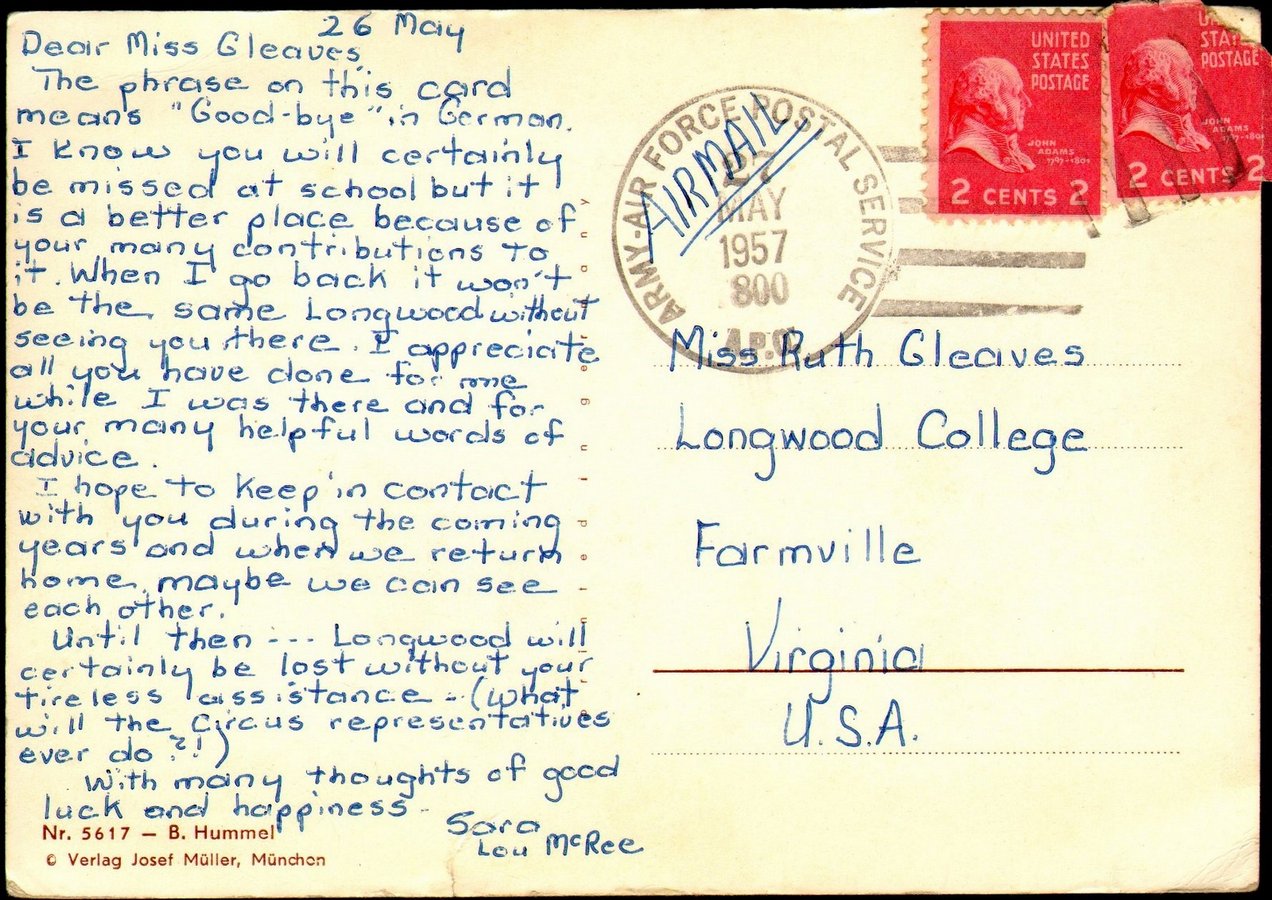 26 May
Dear Miss Gleaves,
The phrase on this card
means "Good-bye" in German.
I know you will certainly
be missed at school but it
is a better place because of
your many contributions to
it. When I go back it won't
be the same Longwood without
seeing you there. I appreciate
all you have done for me
while I was there and for
your many helpful words of
advice.
I hope to keep in contact
with you during the coming
years and when we return
home, maybe we can see
each other.
Until then --- Longwood will
certainly be lost without your
tireless assistance - (what
will the Circus representatives
ever do?!)
With many thoughts of good
luck and happiness -
Sara
Lou McRee
Nr. 5617 — B. Hummel
© Verlag Josef Müller, München
printed in germany
ARMY-AIR FORCE POSTAL SERVICE
AIRMAIL
27
MAY
1957
800
A.P.O.
UNITED
STATES
POSTAGE
JOHN
ADAMS
1797-1801
2 CENTS 2
STATES
POSTAGE
JOHN
ADAMS
1797-1801
2 CENTS 2
Miss Ruth Gleaves
Longwood College
Farmville
Virginia
U.S.A.